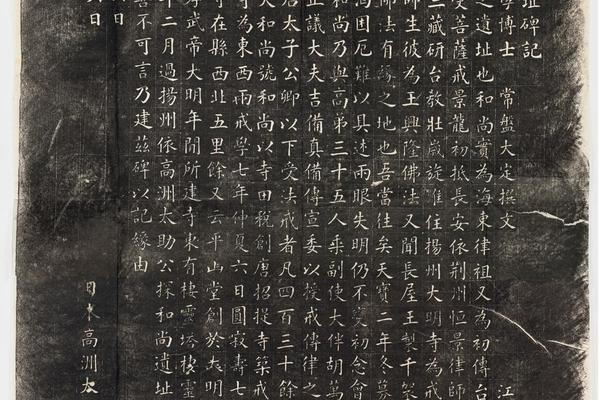 址碑記
學博士 常盤大定撰文 江
之遺址也和尚實為海東律祖又為初傳台
受菩薩戒景龍初抵長安依荆州恒景律師
三藏研台教壯歲旋淮住揚州大明寺為戒
師生彼為王興隆佛法又聞長屋王製千架
師法有緣之地也吾當往矣天寶二年冬募
淘困厄難以具述両眼失明仍不變初念會
和尚乃與高弟三十五人乘副使大伴胡萬
正議大夫吉備真備傳宣委以授戒傳律之
后太子公卿以下受法戒者凡四百三十餘
大和尚號和尚以寺田稅創唐招提寺築戒
寺為東西兩戒學七年仲夏六日圓寂壽七
寺在縣西北五里餘又云平山堂創於大明
孝武帝大明年間所建寺東有棲靈塔棲靈
年二月過揚州依高洲太助公探和尚遺址
喜不可言乃建茲碑以記緣由
日
日 日本 高洲太